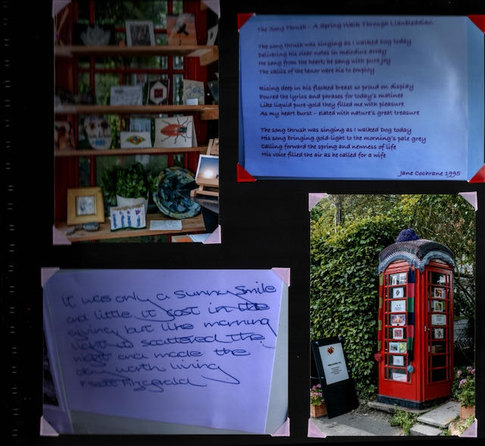 The Song Thrush - A Spring Walk Through Llanbleddian
The song thrush was singing as I walked Dog today
Delivering his clear notes in melodius array
He sang from the heart; he sang with pure joy
The skills of the tenor were his to employ
Rising deep in his flecked breast so proud on display
Poured the lyrics and phrases for today's matinee
Like liquid pure gold they filled me with pleasure
As my heart burst - elated with nature's great treasure
The song thrush was singing as I walked Dog today
His song bringing gold-light to the morning's pale grey
Calling forward the spring and newness of life
His voice filled the air as he called for a wife
Jane Cochrane 1995
It was only a sunny smile
and little it cost in the
giving but like morning
light it scattered the
night and made the
day worth living
F Scott Fitzgerald